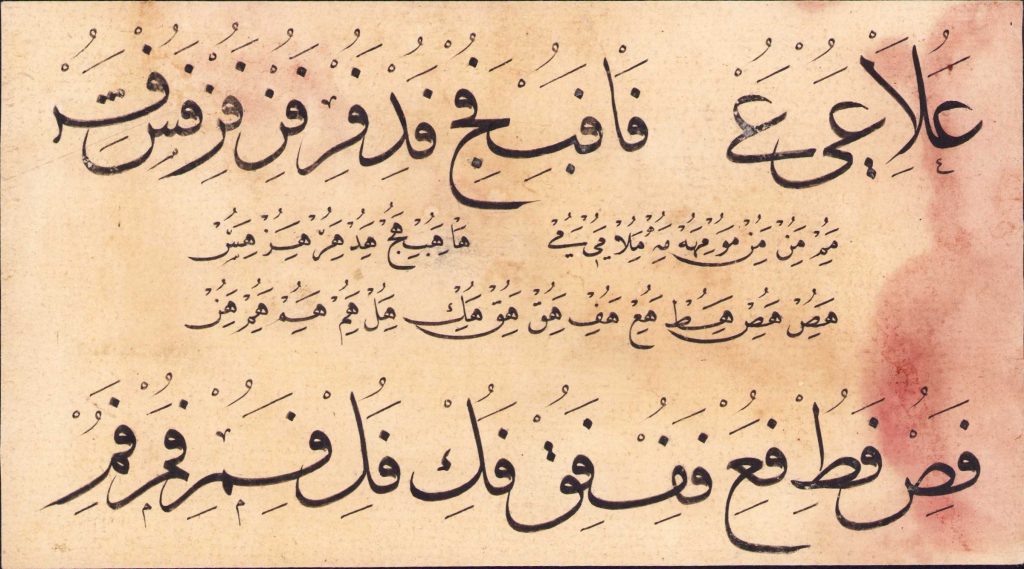 علا عى عے فا فب فج فد فر فر فر فس
مم من من مو مه مه ملا مى مے ها هب هج هد هر هر هس
هص هص هط هع هف هق هق هك هل هم هم هم هن
فص فط فع فف فق فك فل فم فم فم